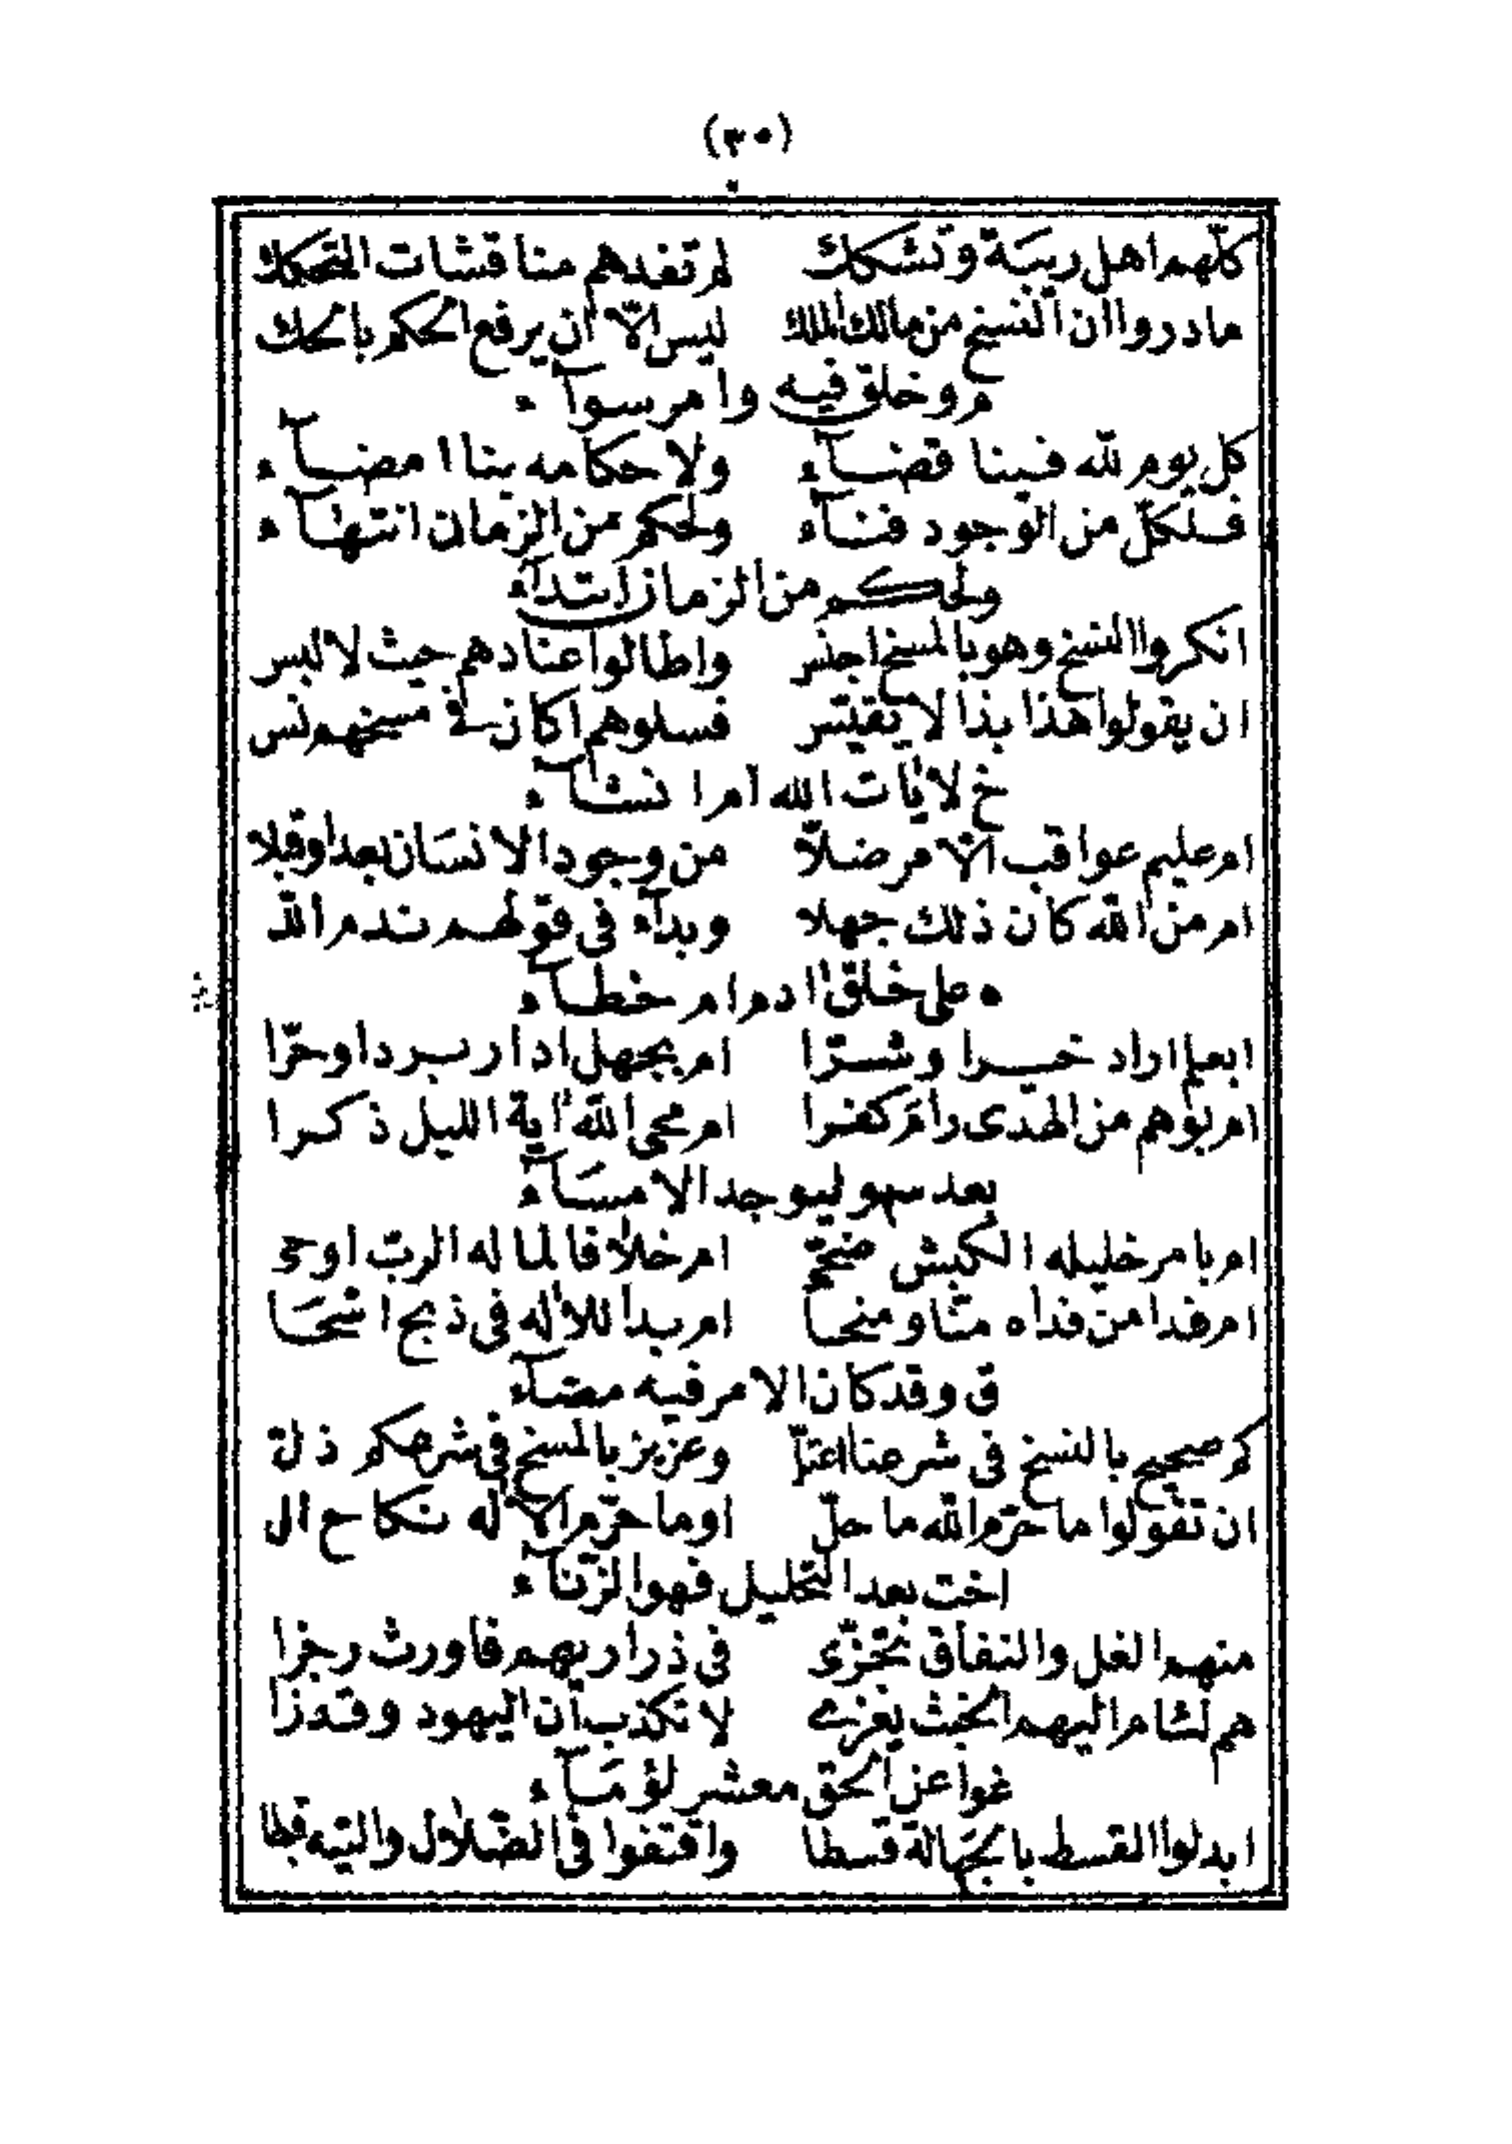 (٣٥)
كلّهم اهل ريبَة وتشكك لم تفدهم مناقشات التحكك
ما دروا ان النسخ من مالك الملك ليس الّا ان يرفع الحكم بالحك
م وخلق فيه وامر سوآء
كل يوم لله فينا قضآء ولاحكامه بنا امضآء
فلكلّ من الوجود فنآء ولحكم من الزمان انتهآء
ولحكم من الزمان ابتدآء
انكروا النسخ وهو بالمسخ اجنس واطالوا عنادهم حيث لا لبس
ان يقولوا هذا بذا لا يقيّس فسلوهم اكان فى مسخهم نس
خ لآيات الله ام انشآء
ام عليم عواقب الامر ضلّا من وجود الانسَان بعد اوقبلا
ام من الله كان ذلك جهلا وبدآء فى قولهم ندم الله
ه على خلق ادم ام خطآء
ابعلم اراد خيرا وشرّا ام بجهل ادار بردا وحرّا
ام بوهم من الهدى رامَ كفرا ام محى الله آية الليل ذكرا
بعد سهو ليوجد الامسَآء
ام بامر خليله الكبش ضحّى ام خلافا لما له الربّ اوحى
ام فدا من فداه منّا ومنحا ام بدا للاله فى ذبح اسْحَا
ق وقد كان الامر فيه مضآء
كم صحيح بالنسخ فى شرعنا اعتلّ وعزيز بالمسخ فى شرعكم ذلّ
ان تقولوا ما حرّم الله ما حلّ اوما حرّم الاله نكاح ال
اخت بعد التحليل فهو الزّنآء
منهم الغل والنفاق تحزّى فى ذراريهم فاورث رجزا
هم لشام اليهم الخبث يعزى لا تكذب ان اليهود وقد زا
غوا عن الحق معشر لؤمَآء
ابدلوا القسط بالجَهالة قسطا واقتفوا فى الضّلال والتيه قبطا